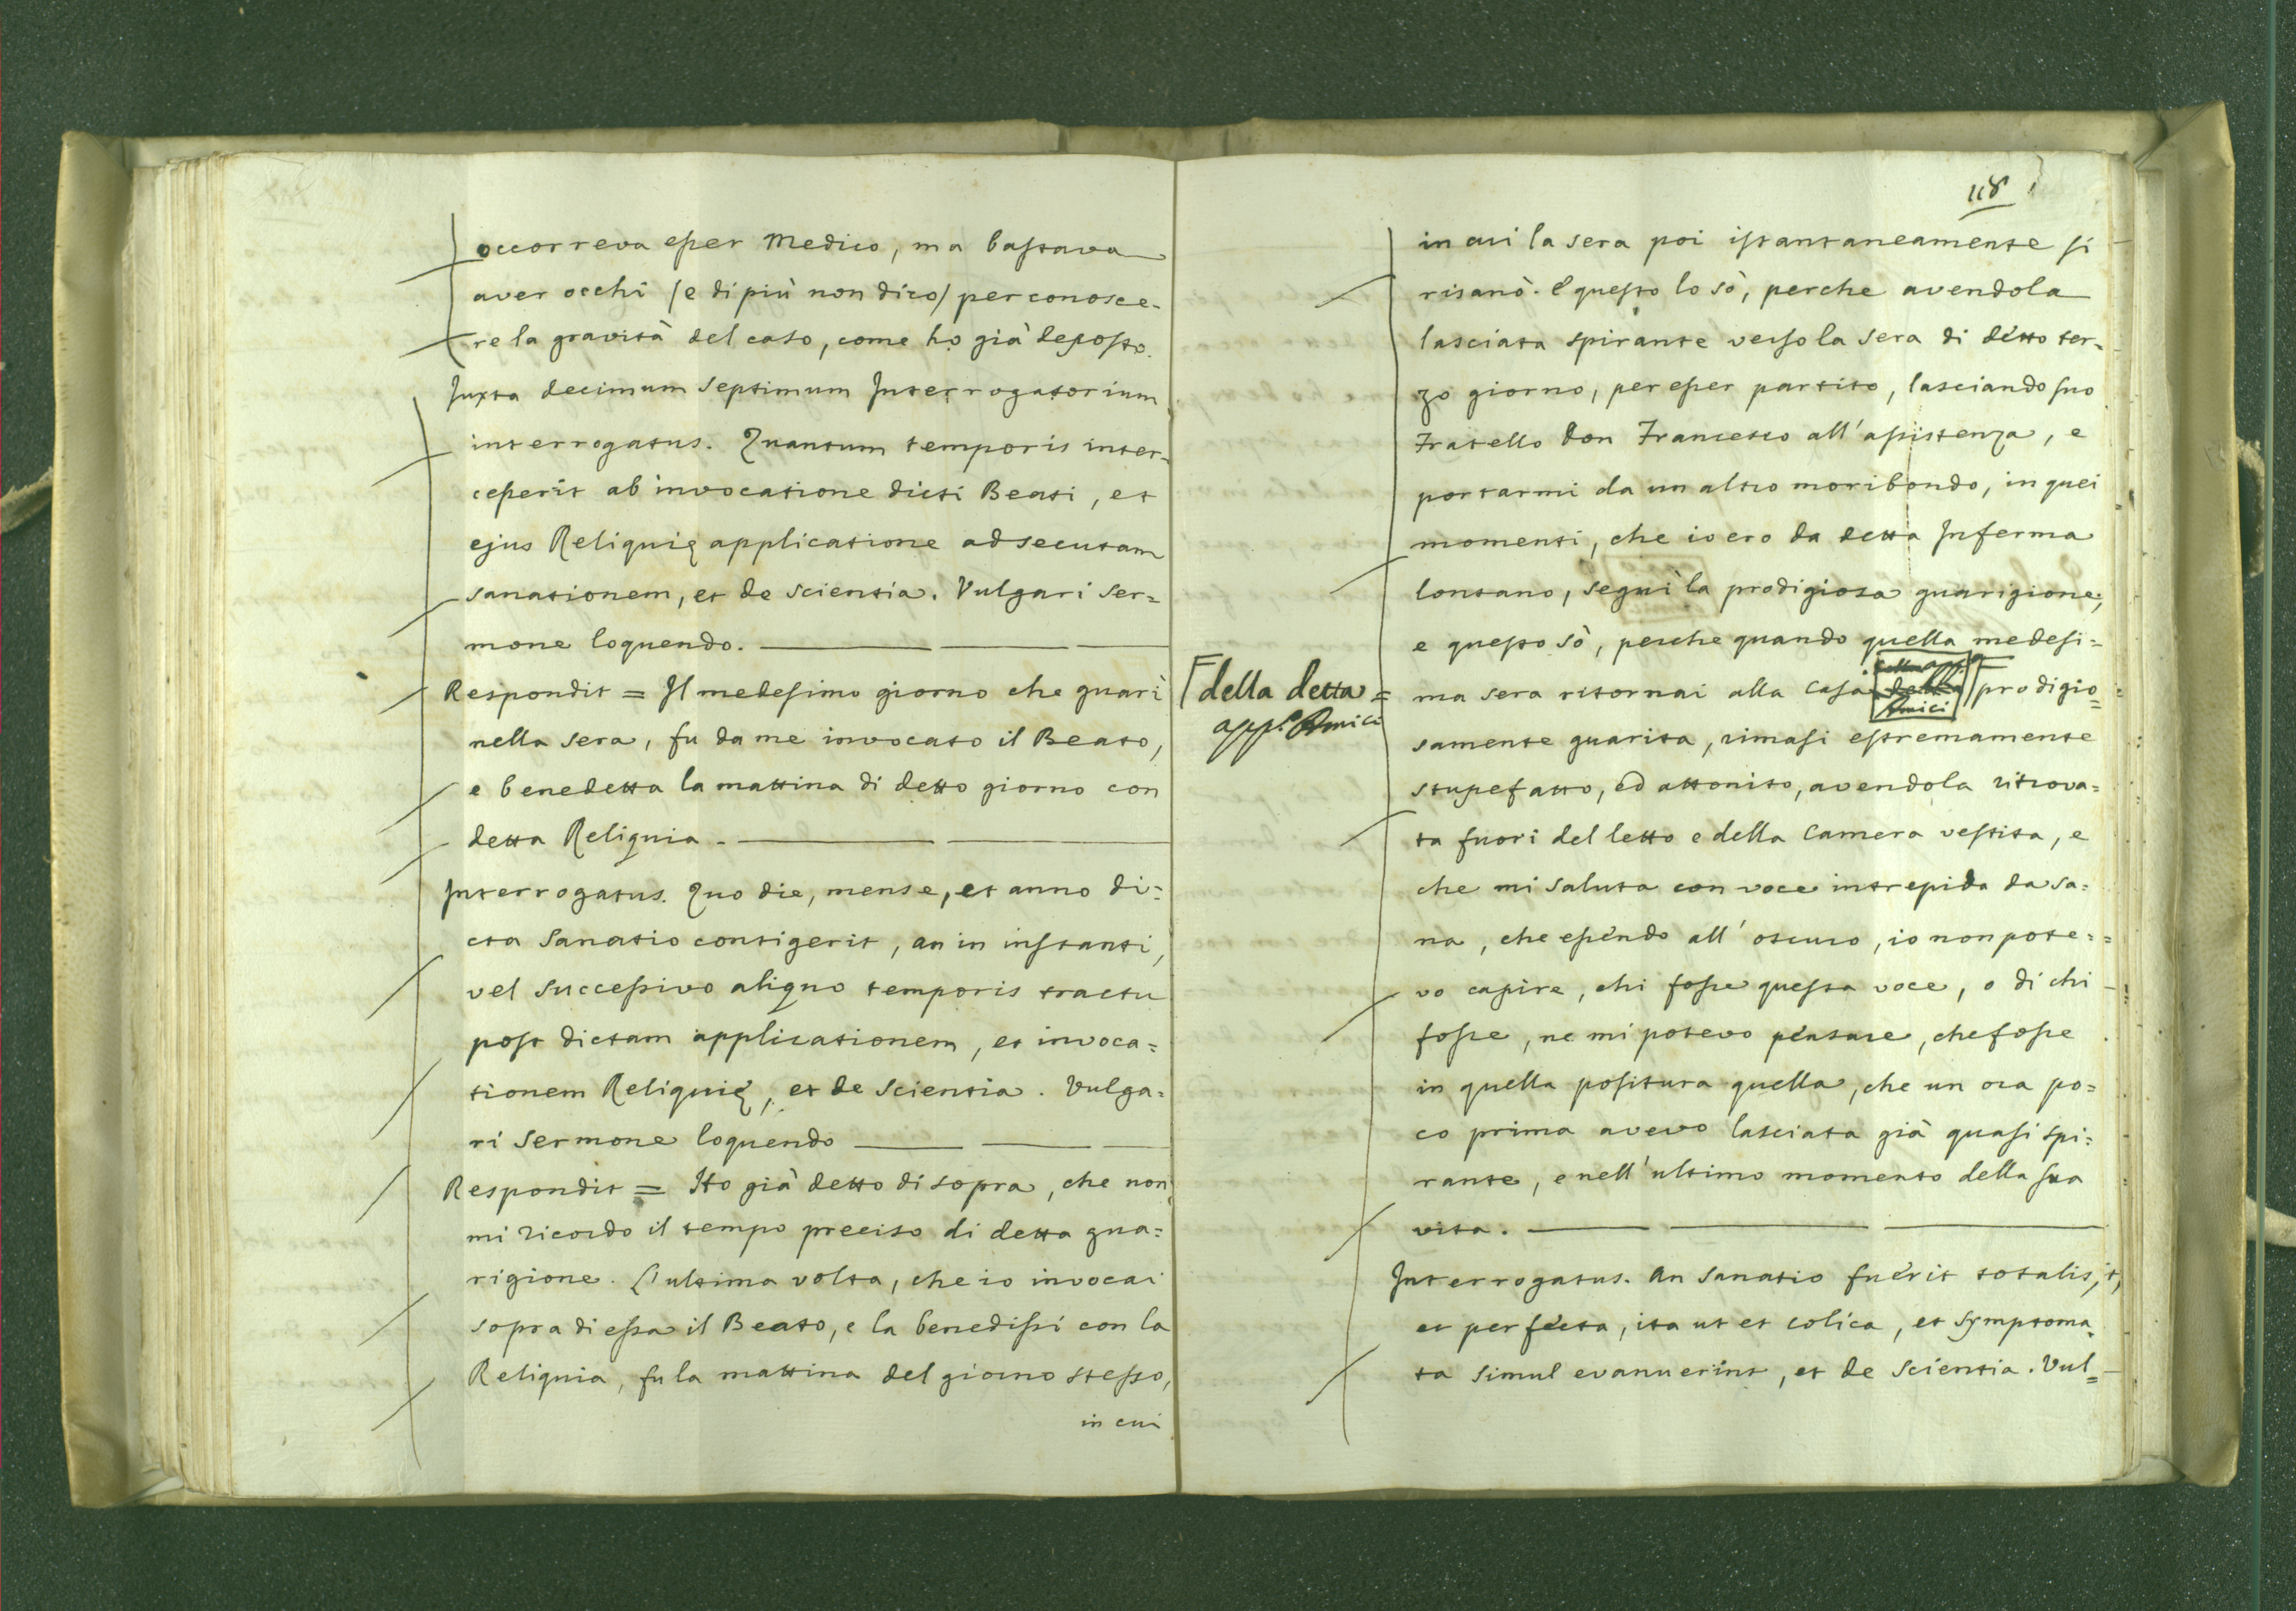 occorreva esser Medico, ma bastava
aver occhi /e di più non dico/ per conosce-
re la gravità del caso, come ho già deposto.
Juxta decimum septimum Interrogatorium
interrogatus. Quantum temporis inter-
cesserit ab invocatione dicti Beati, et
ejus Reliquię applicatione ad secutam
sanationem, et de scientia. Vulgari Ser=
mone loquendo.
Respondit = Il medesimo giorno che guarì
nella sera, fu da me invocato il Beato,
e benedetta la mattina di detto giorno con
detta Reliquia.
Interrogatus. Quo die, mense, et anno di=
cta Sanatio contigerit, an in instanti,
vel successivo aliquo temporis tractu
post dictam applicationem, et invoca=
tionem Reliquię, et de Scientia. Vulga=
ri Sermone loquendo
Respondit = Ho già detto di sopra, che non
mi ricordo il tempo preciso di detta gua=
rigione. L'ultima volta, che io invocai
sopra di essa il Beato, e la benedissi con la
Reliquia, fu la mattina del giorno stesso,
in cui
118
in cui la sera poi istantaneamente si
risanò. E questo lo sò, perche avendola
lasciata spirante verso la sera di detto ter-
zo giorno, per esser partito, lasciando suo
Fratello Don Francesco all'assistenza, e
portarmi da un altro moribondo, in quei
momenti, che io ero da detta Inferma
lontano, seguì la prodigiosa guarigione,
e questo sò, perche quando quella medesi=
ma sera ritornai alla Casa della Amici prodigio=
della detta =
app.ª Amici
samente guarita, rimasi estremamente
stupefatto, ed attonito, avendola ritrova=
ta fuori del letto e della Camera vestita, e
che mi saluta con voce intrepida da sa=
na, che essendo all'oscuro, io non pote=
vo capire, chi fosse questa voce, o di chi
fosse, ne mi potevo pensare, che fosse
in quella positura quella, che un ora po=
co prima avevo lasciata già quasi spi=
rante, e nell'ultimo momento della sua
vita.
Interrogatus. An Sanatio fuerit totalis,
et perfecta, ita ut et colica, et symptoma=
ta simul evanuerint, et de Scientia. Vul=